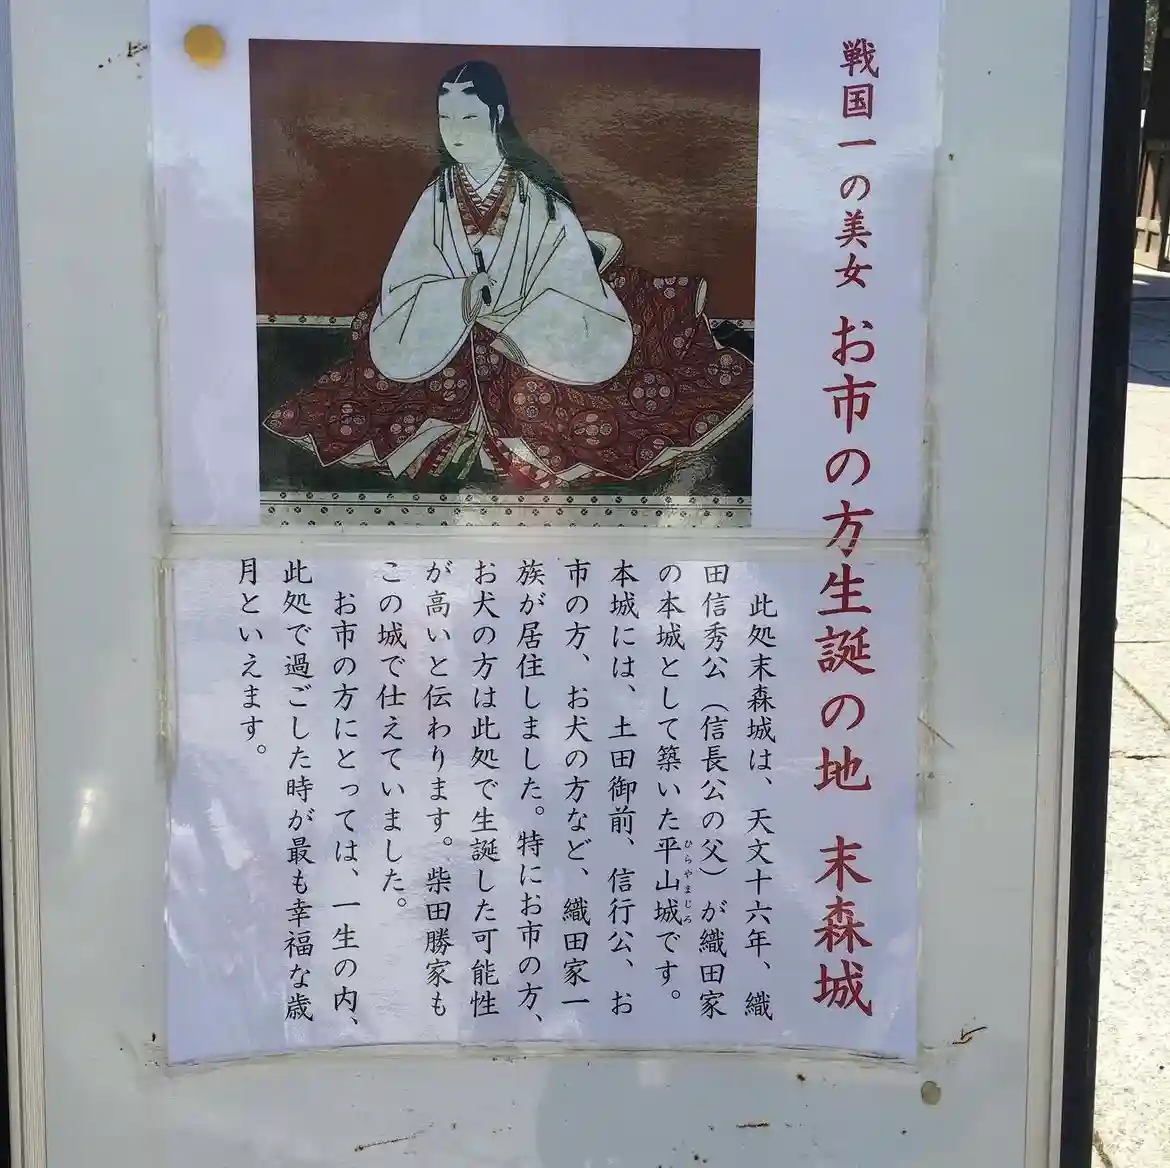 戦国一の美女 お市の方生誕の地 末森城
此処末森城は、天文十六年、織
田信秀公（信長公の父）が織田家
の本城として築いた平山城です。
ひらやまじろ
本城には、土田御前、信行公、お
市の方、お犬の方など、織田家一
族が居住しました。特にお市の方、
お犬の方は此処で生誕した可能性
が高いと伝わります。柴田勝家も
この城で仕えていました。
お市の方にとっては、一生の内、
此処で過ごした時が最も幸福な歳
月といえます。